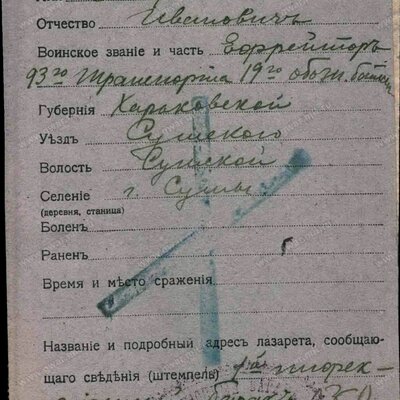 Отчество Ивановичъ
Воинское званіе и часть Ефрейторъ
93го транспорта 19го обозн. баталіона
Губернія Харьковской
Уѣздъ Сумского
Волость Сумской
Селеніе г. Сумы
(деревня, станица)
Боленъ
Раненъ
Время и мѣсто сраженія
Названіе и подробный адресъ лазарета, сообщаю-
щаго свѣдѣнія (штемпель)